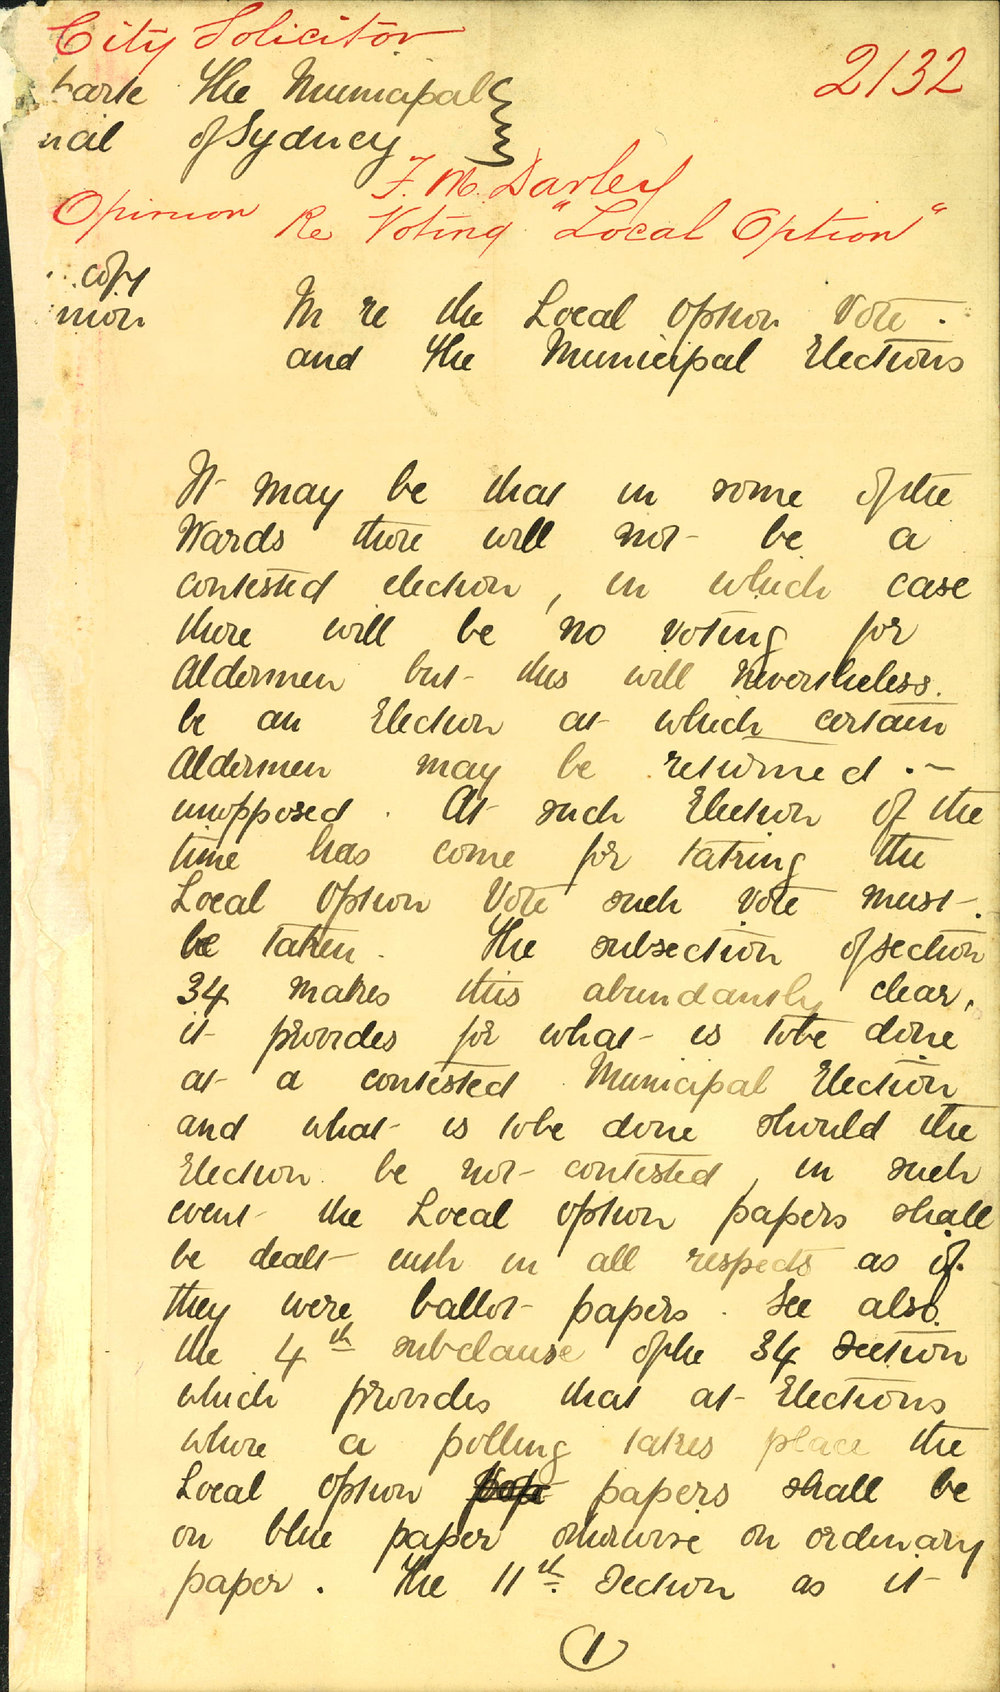 City Solicitor
2132
parte The Municipal
cil of Sydney
F. M. Darley
Opinion Re Voting "Local Option"
copy
nion
In re the Local Option Vote.
and the Municipal Elections
It may be that in some of the
Wards there will not be a
contested election, in which case
there will be no voting for
Aldermen but this will nevertheless
be an Election at which certain
Aldermen may be returned
unopposed. At such Election if the
time has come for taking the
Local Option Vote such vote must
be taken. The subsection of section
34 makes this abundantly clear,
it provides for what is to be done
at a contested Municipal Election
and what is to be done should the
Election be not contested, in such
event the Local Option papers shall
be dealt with in all respects as if
they were ballot papers. See also
the 4th subclause of the 34 Section
which provides that at Elections
where a polling takes place the
Local Option papers shall be
on blue paper otherwise on ordinary
paper. The 11th Section as it
1